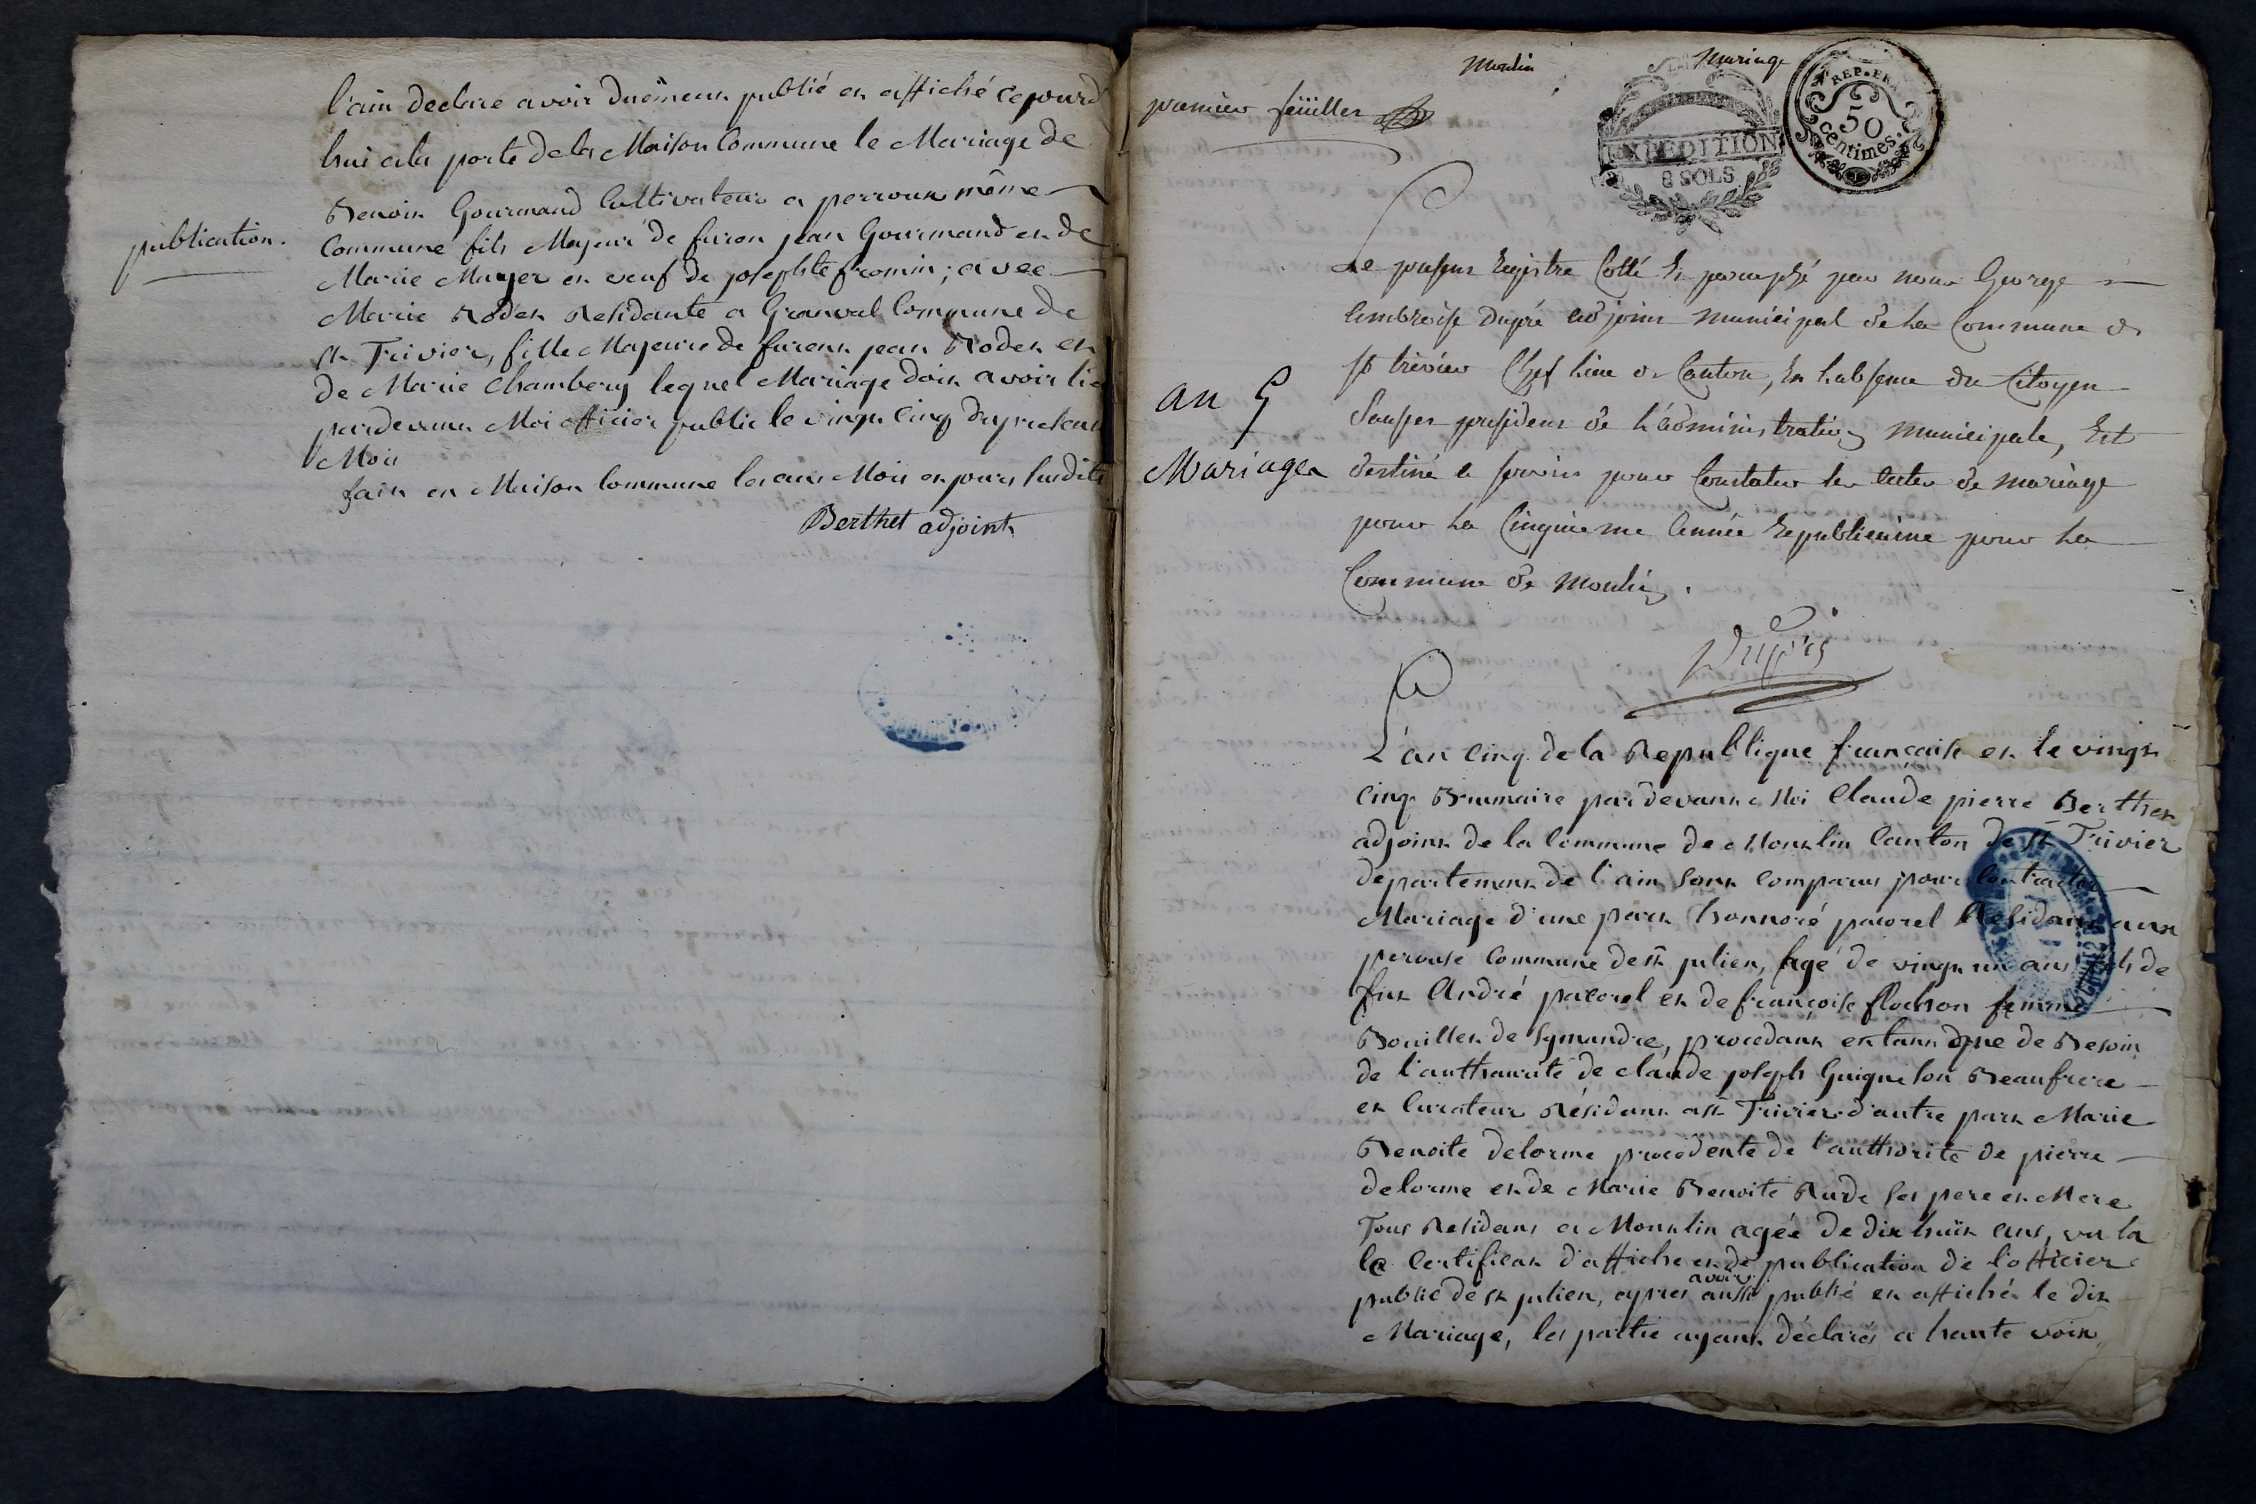 l'ain declare avoir duëment publié et affiché cejourd
hui a la porte de la Maison Commune le Mariage de
Benoit Gourmand Cultivateur a perroux même
publication.
Commune fils Majeur de furon jean Gourmand et de
Marie Mayer et veuf de josephte fromin; avec
Marie Rodet Residante a Granval Commune de
st Trivier, fille Majeure de furent jean Rodet et
de Marie Chambery lequel Mariage doit avoir lie
pardevant Moi officier public le vingt cinq du present
Moi
fait en Maison Commune les ans Moi et jours susdits
Berthet adjoint
Moulin Mariage
premier feüillet
EXPEDITION
8 SOLS
REP. FRA
50
centimes.
Le present Registre Cotté Et paraphé par nous George
Ambroise Dupré adjoint municipal de la Commune de
st trivier Chef lieu de Canton, En l'absence du Citoyen
an 5
president de l'administration municipale, Est
Mariages
destiné a servir pour Constater les actes de mariage
pour la Cinquieme année Republicaine pour la
Commune de Moulin.
Dupré
L'an cinq de la Republique française et le vingt
cinq Brumaire pardevant Moi Claude pierre Berthet
adjoint de la Commune de Mouslin Canton de st Trivier
departement de l'ain sont comparus pour Contracter
Mariage d'une part honnoré pacorel Residant aux
perouse Commune de st julien, agé de vingt un ans fils de
fut André pacorel et de françoise flochon femme
Bouillet de symandre, procedant en tant que de Besoin
de l'authaurité de claude joseph Guigueton Beaufrere
et Curateur Résidant a st Trivier d'autre part Marie
Benoite delorme procedente de l'authorité de pierre
delorme et de Marie Benoite Rude ses pere et Mere
Tous Residans a Mouslin agée de dix huit ans, vu la
le Certificat d'affiche et de publication de l'officier
public de st julien, apres avoir aussi publié et affiché le dit
Mariage, les partie ayant déclarés a haute voix